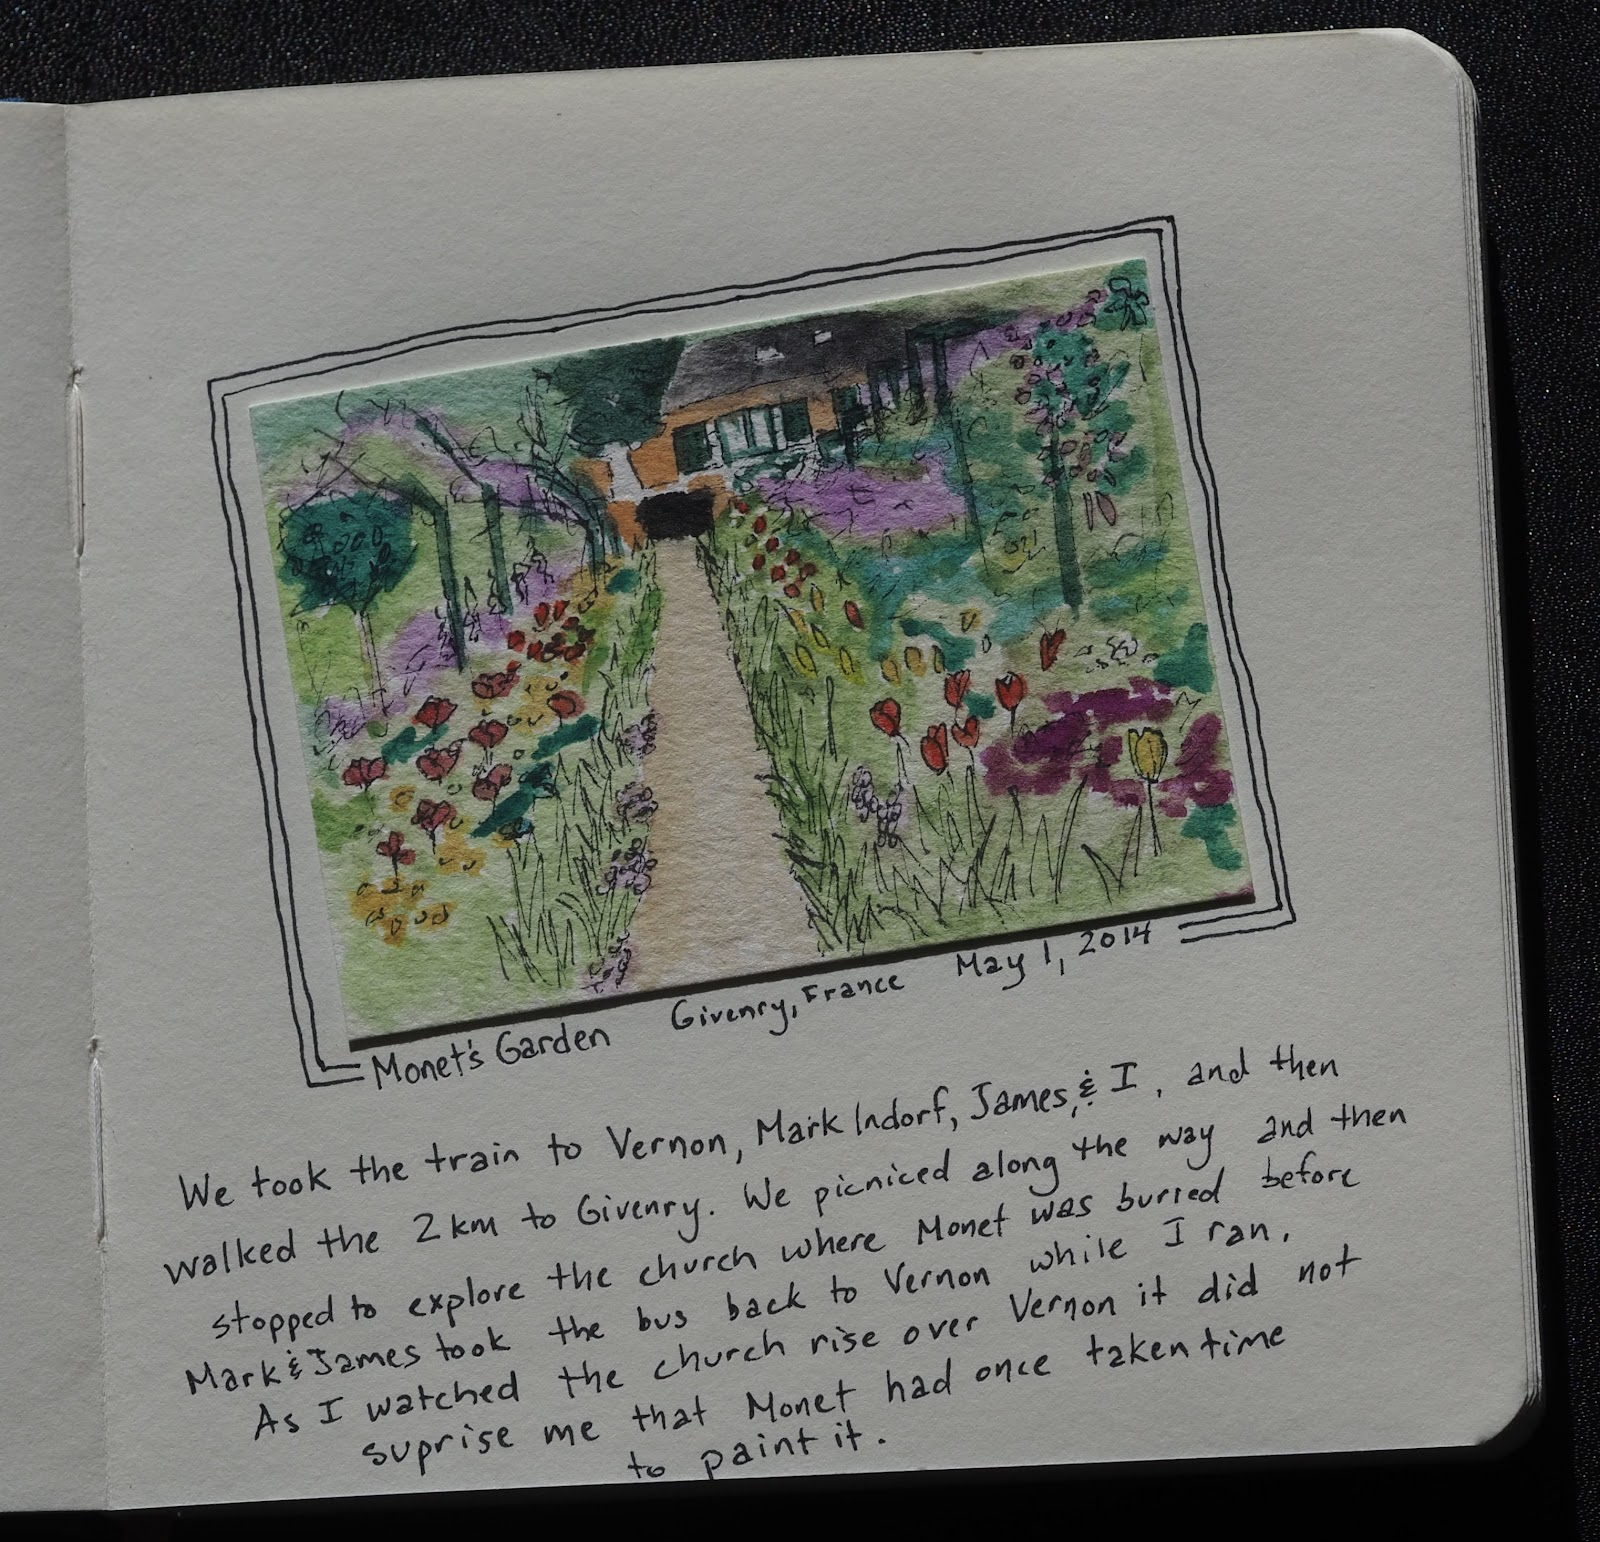 Monet's Garden Givenry, France May 1, 2014
We took the train to Vernon, Mark Indorf, James, & I, and then
walked the 2 km to Givenry. We picniced along the way and then
stopped to explore the church where Monet was burred before
Mark & James took the bus back to Vernon while I ran.
As I watched the church rise over Vernon it did not
suprise me that Monet had once taken time
to paint it.